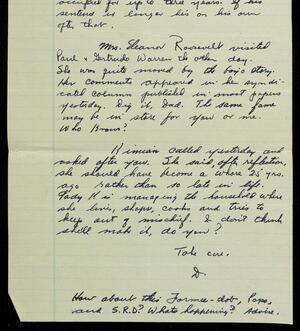 occupied for up to three years. If his
sentence is longer his on his own
after that.
Mrs. Eleanor Roosevelt visited
Paul & Gertrude Warren the other day.
She was quite moved by the boys story.
Her comments appeared in her syndi-
cated column published in most papers
yesterday. Dig it, Dad. The same fame
may be in store for you or me.
Who knows?
called yesterday and
asked after you. She said, after reflection,
she should have become a whore 25 yrs.
ago rather than so late in life.
Lady K is managing the household where
she lives, shops, cooks and tries to
keep out of mischief. I don't think
she'll make it, do you?
Take care.
D
How about this Formee-dob, Pops,
and S.R.D.? Whats happening? Advise.